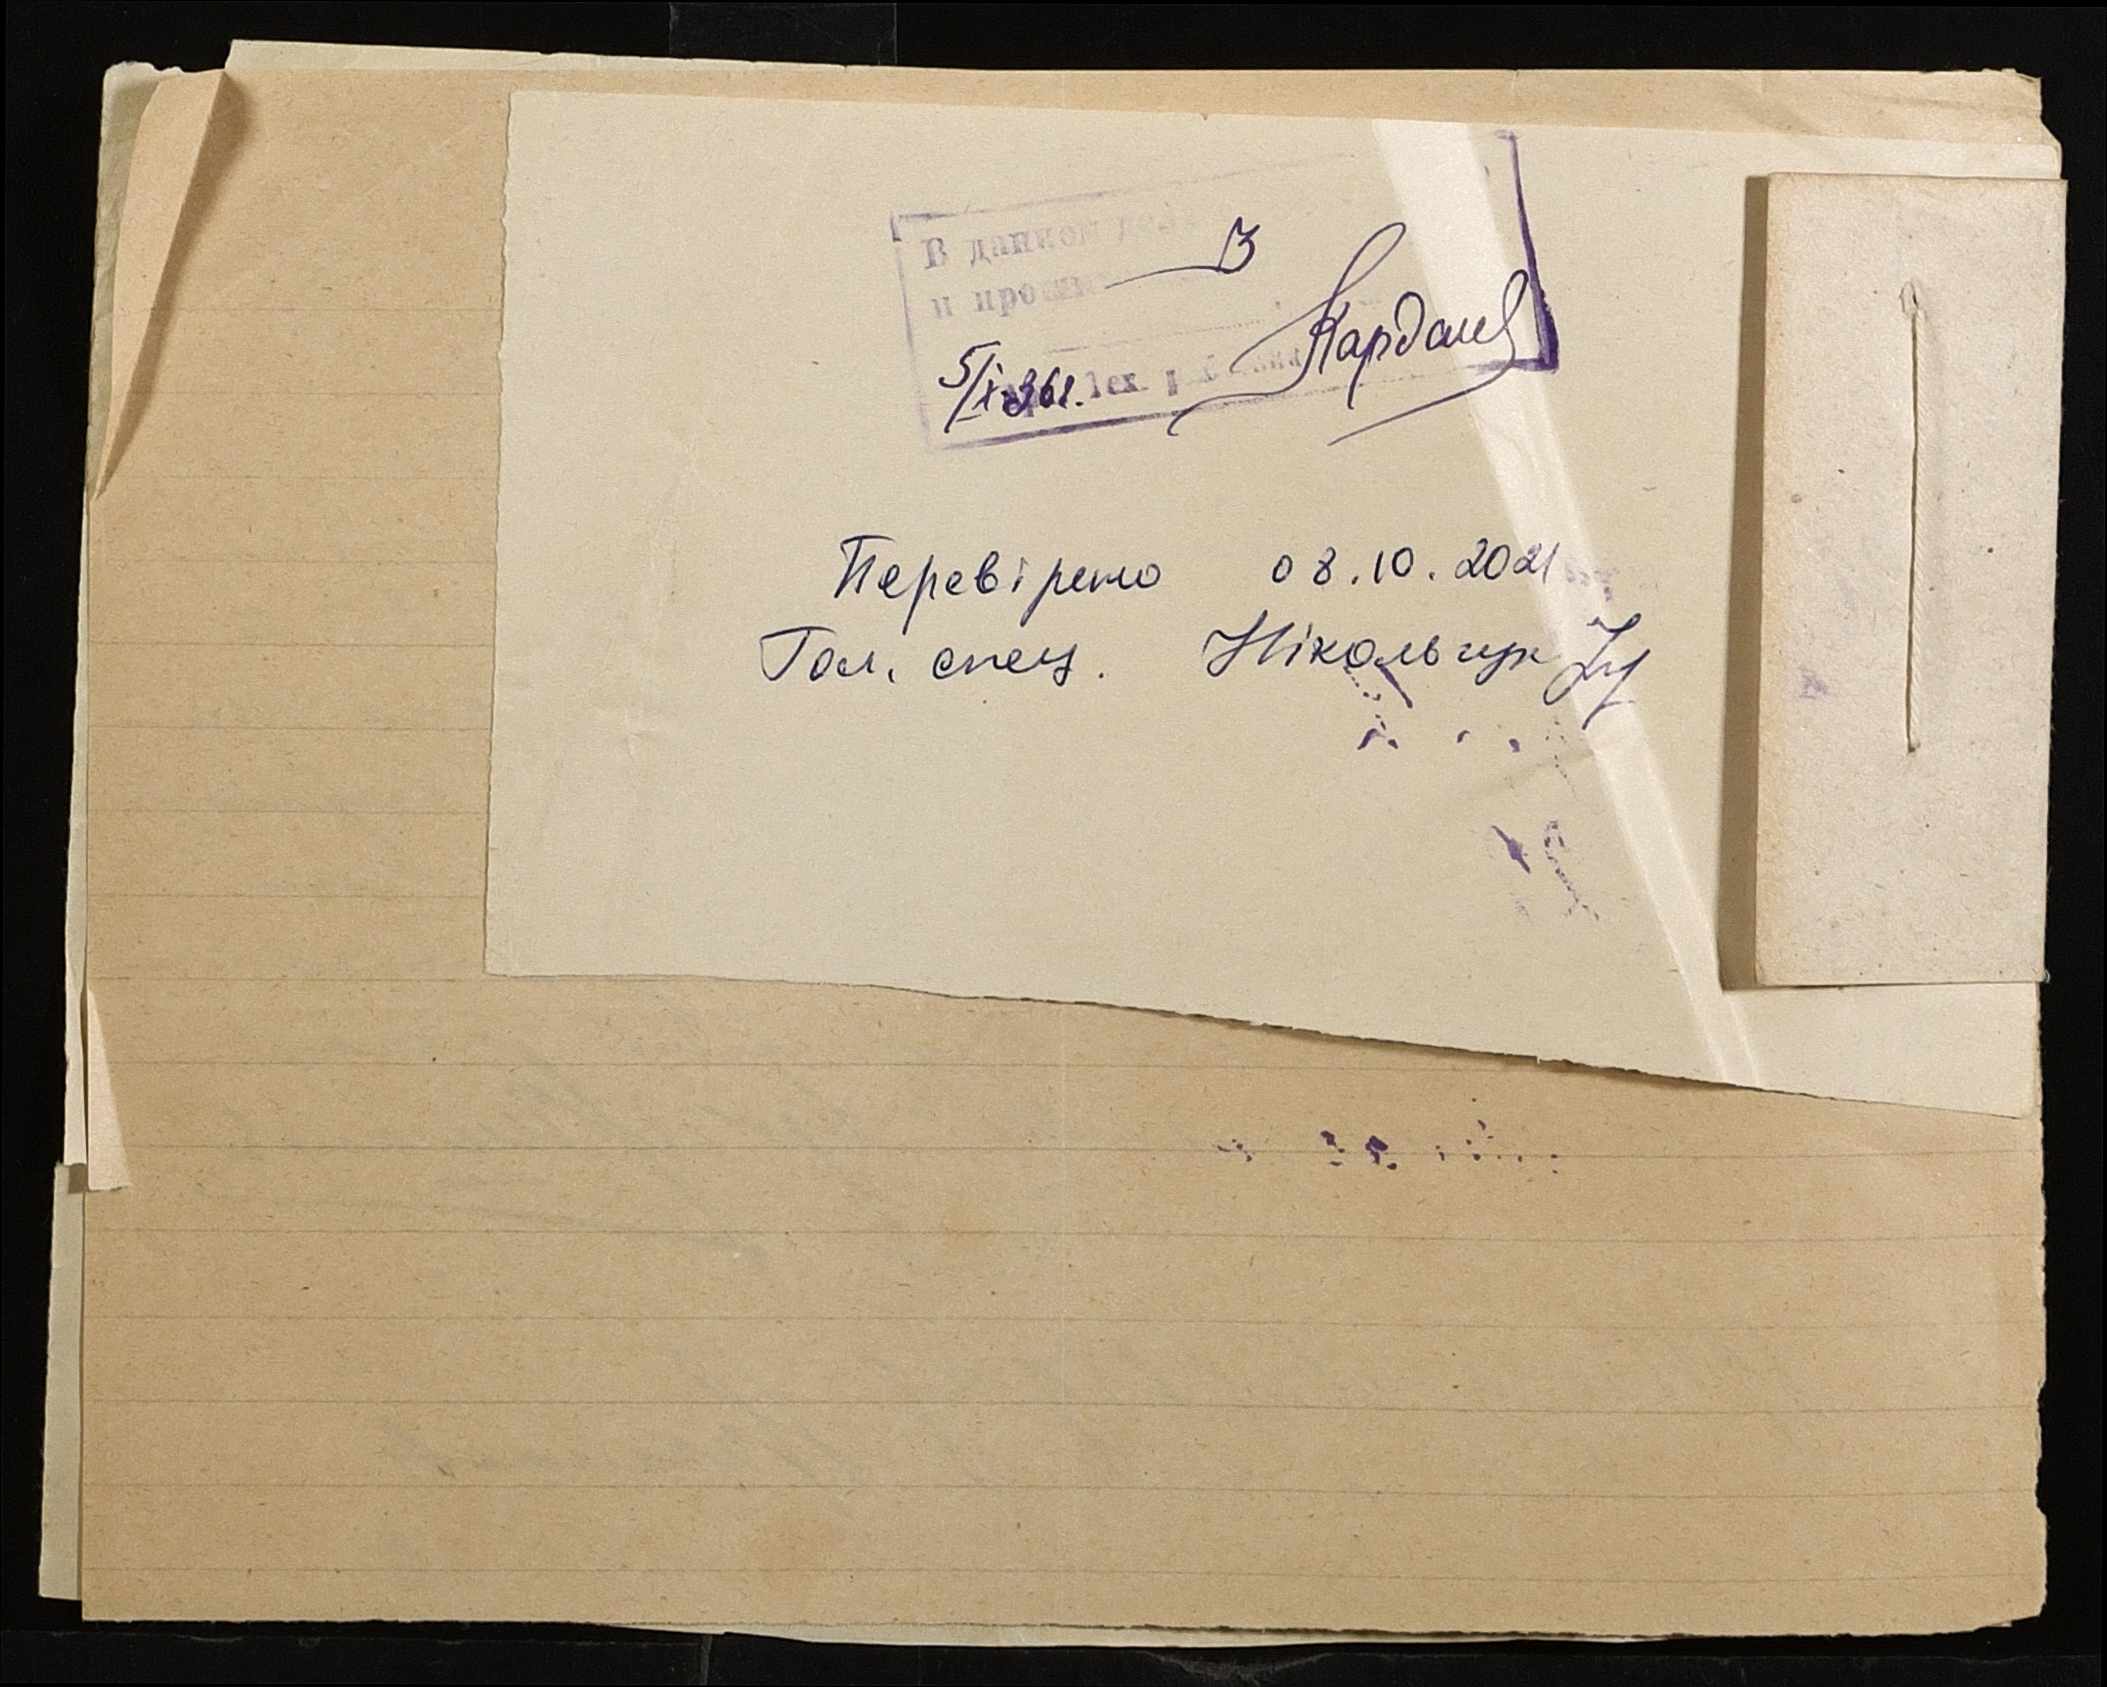 В данном деле
и прошн 3
5/IX-36г. Тех. Кардаш
Перевірено 08.10.2021
Гол. спец. Нікольчук